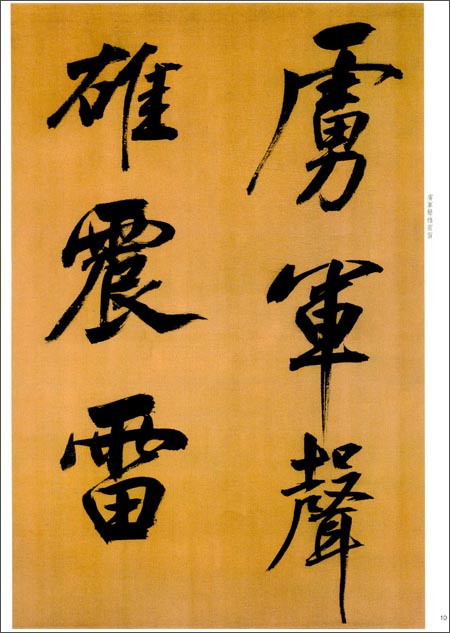 虜軍聲
雄震雷
虜軍聲雄震雷
10